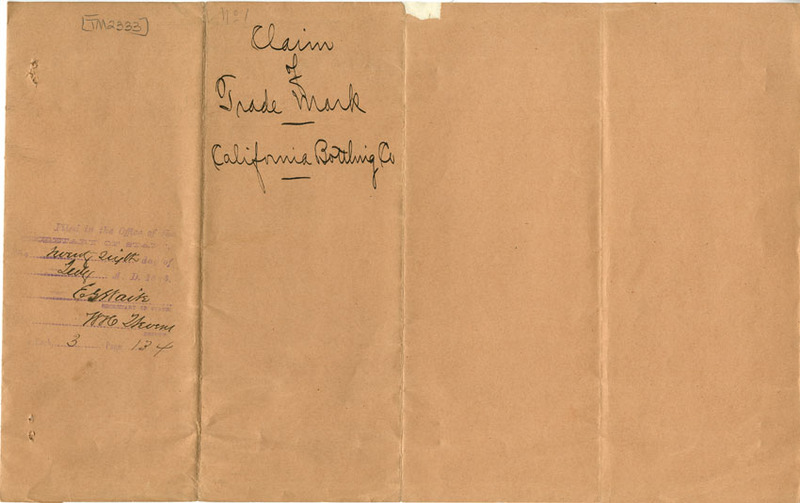 [TM2333]
No 1
Claim
of
Trade Mark
California Bottling Co
Filed in the Office of the
SECRETARY OF STATE
day of
July A. D. 18
E G Waite
SECRETARY OF STATE
3 Page 134